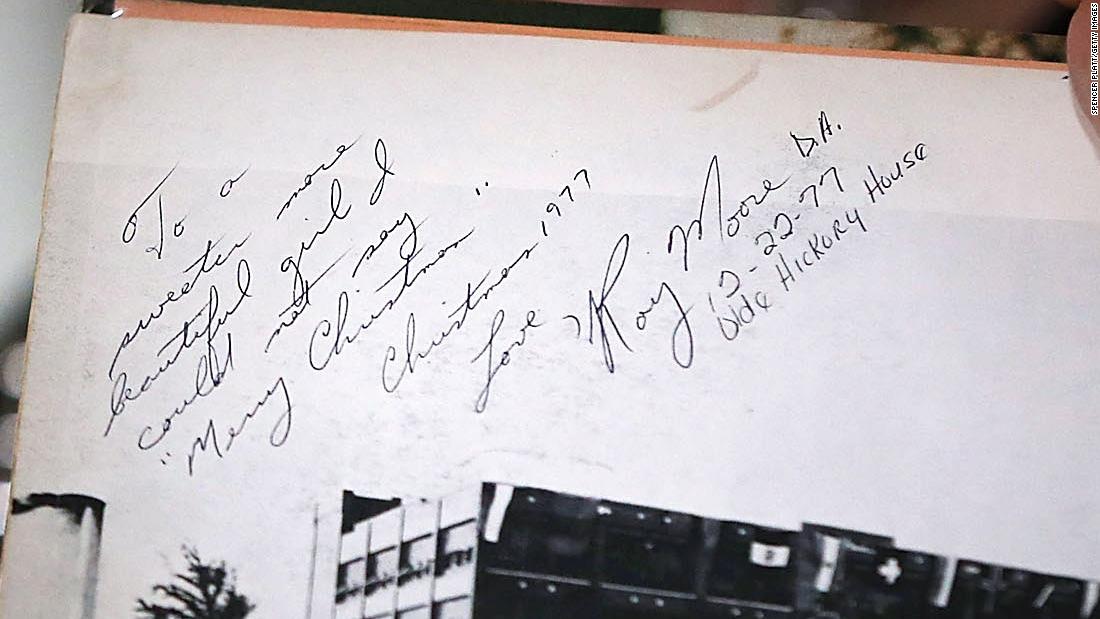 To a
sweeter more
beautiful girl I
could not say
"Merry Christmas"
Christmas 1977
Love
Roy Moore D.A.
12-22-77
Olde Hickory House
SPENCER PLATT/GETTY IMAGES